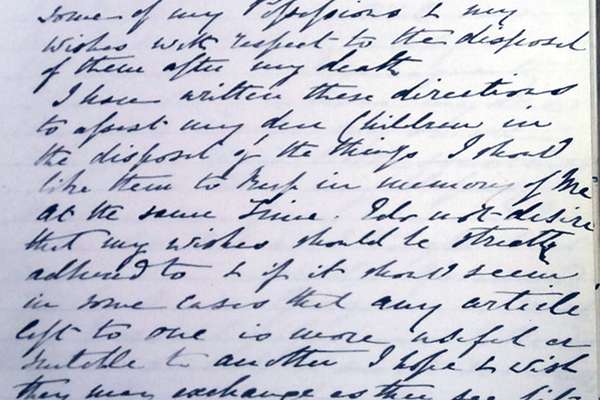 some of my Possessions & my
wishes with respect to the disposal
of them after my death
I have written these directions
to assist my dear Children in
the disposal of the things I should
like them to keep in memory of me
at the same time. I do not desire
that my wishes should be strictly
adhered to & if it should seem
in some cases that any article
left to one is more useful or
suitable to another I hope & wish
they may exchange as they see fit